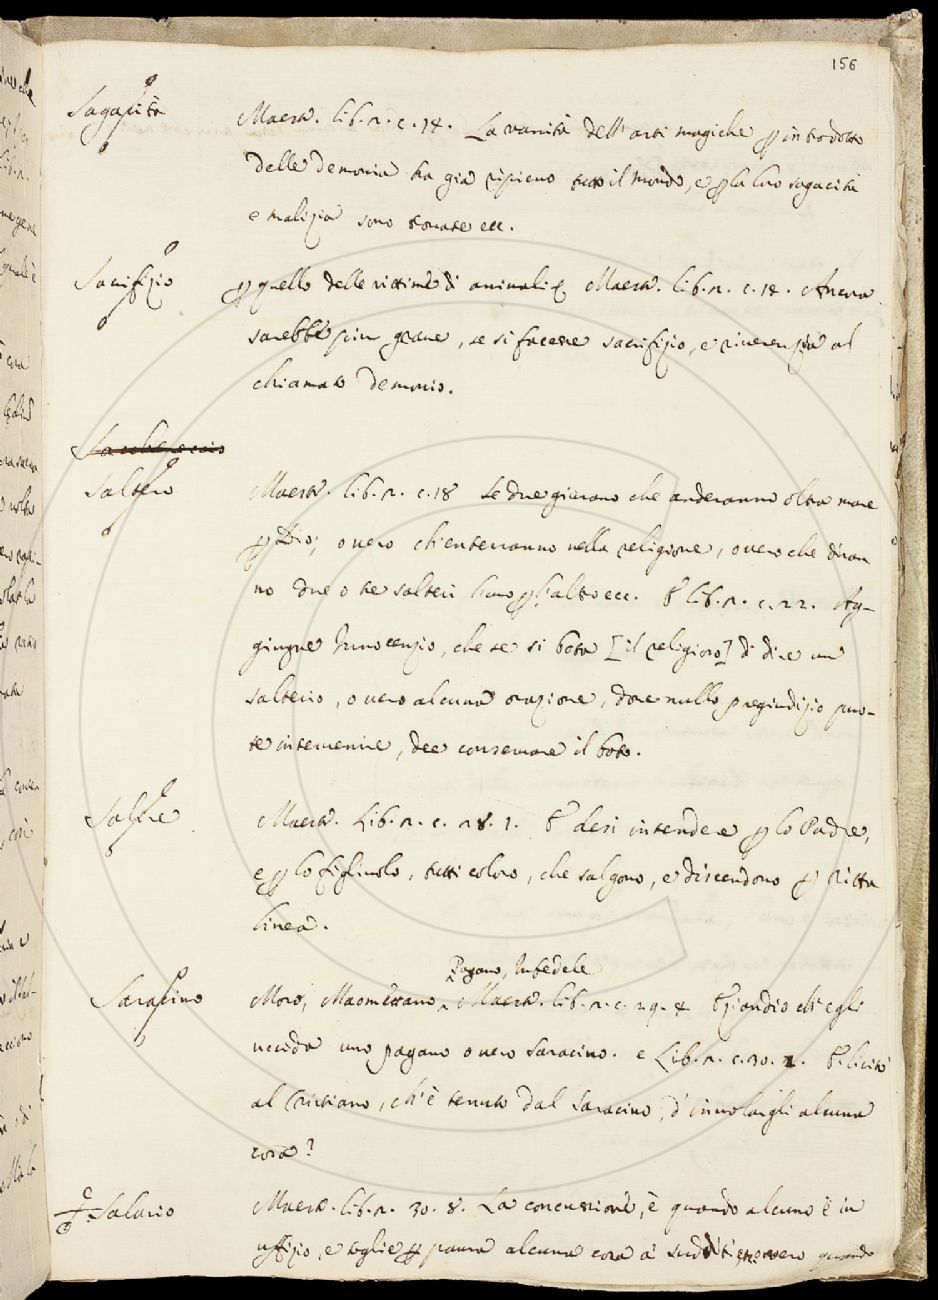 156
Sagacità Maestr. lib. 2. c. 14. La vanità dell'arti magiche p introdotto
delle demonia ha già ripieno tutto il mondo, e p la loro sagacità
e malizia sono tornate ecc.
Sacrifizio p quello delle vittime di animali Maestr. lib. 2. c. 14. Ancora
sarebbe piu grave, se si facesse sacrifizio, e riverenzia al
chiamato demonio.
Saltero Maestr. lib. 2. c. 18 Se due giurano che anderanno oltra mare
p Dio; overo ch'enterranno nella religione, overo che diran-
no due o tre salteri l'uno p l'altro ecc. E lib. 2. c. 22. Ag-
giugne Innocenzio, che se si bota [il religioso] di dire un
salterio, overo alcuna orazione, dove nullo pregiudizio puo-
te intervenire, dee conservare il boto.
Salire Maestr. Lib. 2. c. 28. 1. E desi intendere p lo Padre,
e p lo figliuolo, tutti coloro, che salgono, e discendono p ritta
linea.
Pagano, Infedele
Saracino Moro, Maomettano, Maestr. lib. 2. c. 29. 4 Eziandio ch'egli
uccida uno pagano overo Saracino. e Lib. 2. c. 30. 2. E licito
al Cristiano, ch'è tenuto dal Saracino, d'involargli alcuna
cosa?
Salario Maestr. lib. 2. 30. 8. La concussione, è quando alcuno è in
uffizio, e toglie p paura alcuna cosa a' sudditi, overo quando